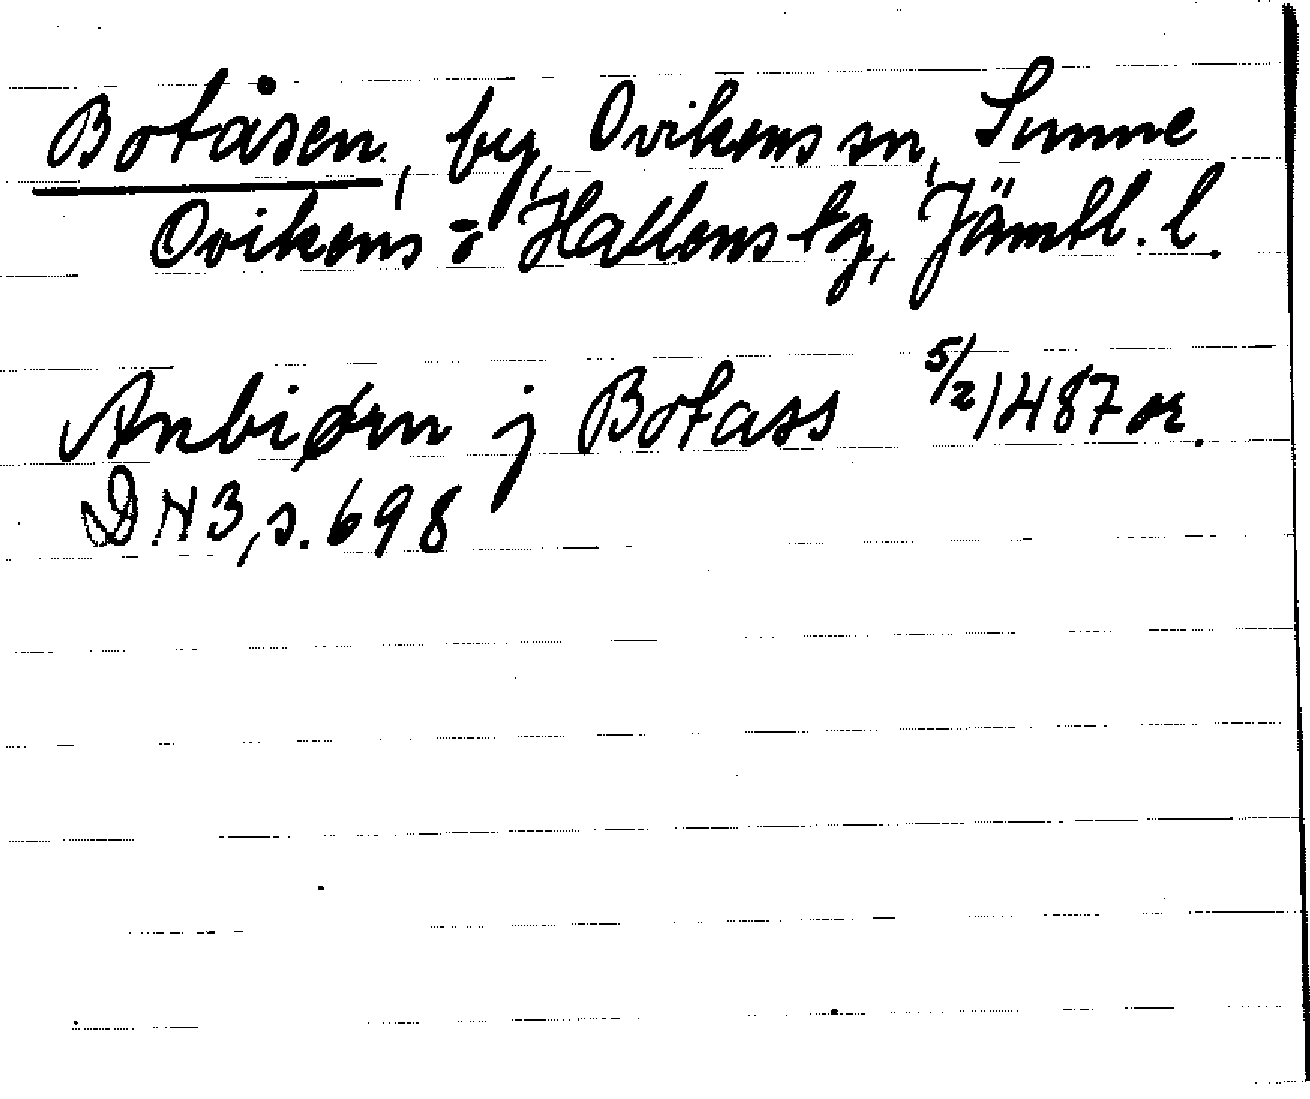 Botåsen, by, Ovikens sn, Sunne
Ovikens o Hallens tg, Jämtl. l.
Anbiørn j Botass 5/2 1487 or.
DN 3, s. 698